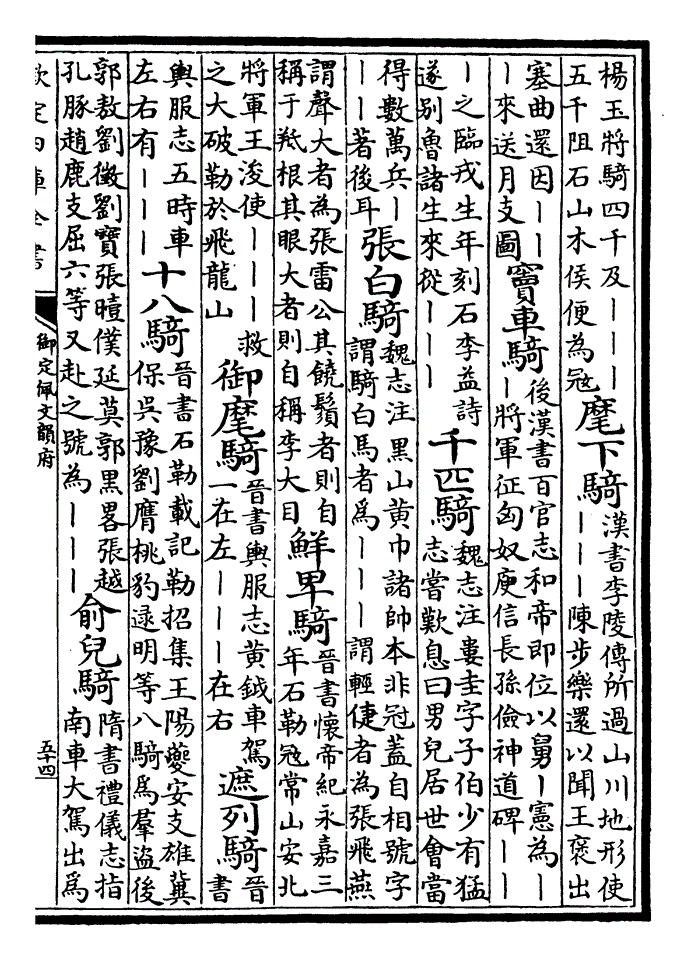 楊玉將騎四千及｜｜｜
五千阻石山木侯便為冦
麾下騎
漢書李陵傳所過山川地形使
｜｜｜陳步樂還以聞王褒出
塞曲還因｜｜
｜來送月支圖
竇車騎
後漢書百官志和帝即位以舅｜憲為｜
｜將軍征匈奴庾信長孫儉神道碑｜｜
｜之臨戎生年刻石李益詩
遂别魯諸生來從｜｜｜
千匹騎
魏志注婁圭字子伯少有猛
志嘗歎息曰男兒居世會當
得數萬兵｜
｜｜著後耳
張白騎
魏志注黑山黄巾諸帥本非冠蓋自相號字
謂騎白馬者為｜｜｜謂輕㨗者為張飛燕
謂聲大者為張雷公其饒鬚者則自
稱于羝根其眼大者則自稱李大目
鮮卑騎
晉書懷帝紀永嘉三
年石勒冦常山安北
將軍王浚使｜｜｜救
之大破勒於飛龍山
御麾騎
晉書輿服志黄鉞車駕
一在左｜｜｜在右
遮列騎
晉
書
輿服志五時車
左右有｜｜｜
十八騎
晉書石勒載記勒招集王陽夔安支雄冀
保吳豫劉膺桃豹逯明等八騎為羣盜後
郭敖劉徵劉寶張曀僕延莫郭黑畧張越
孔豚趙鹿支屈六等又赴之號為｜｜｜
俞兒騎
隋書禮儀志指
南車大駕出為
欽定四庫全書
御定佩文韻府
五十四